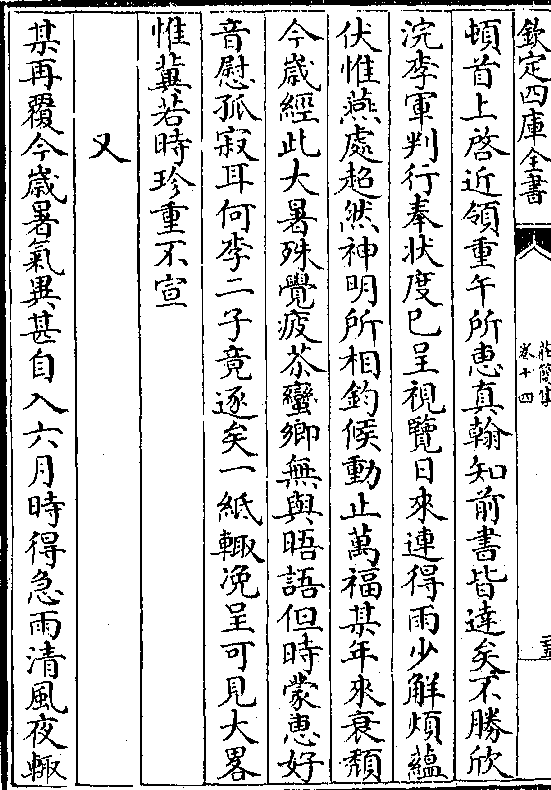 欽定四庫全書
莊簡集
卷十四
頓首上啓近領重午所惠真翰知前書皆達矣不勝欣
浣李軍判行奉狀度已呈視覽日來連得雨少解煩蘊
伏惟燕處超然神明所相鈞候動止萬福某年來衰頽
今歲經此大暑殊覺疲苶蠻鄉無與晤語但時蒙惠好
音慰孤寂耳何李二子竟逐矣一紙輙浼呈可見大畧
惟冀若時珍重不宣
又
某再覆今歲暑氣異甚自入六月時得急雨清風夜輙